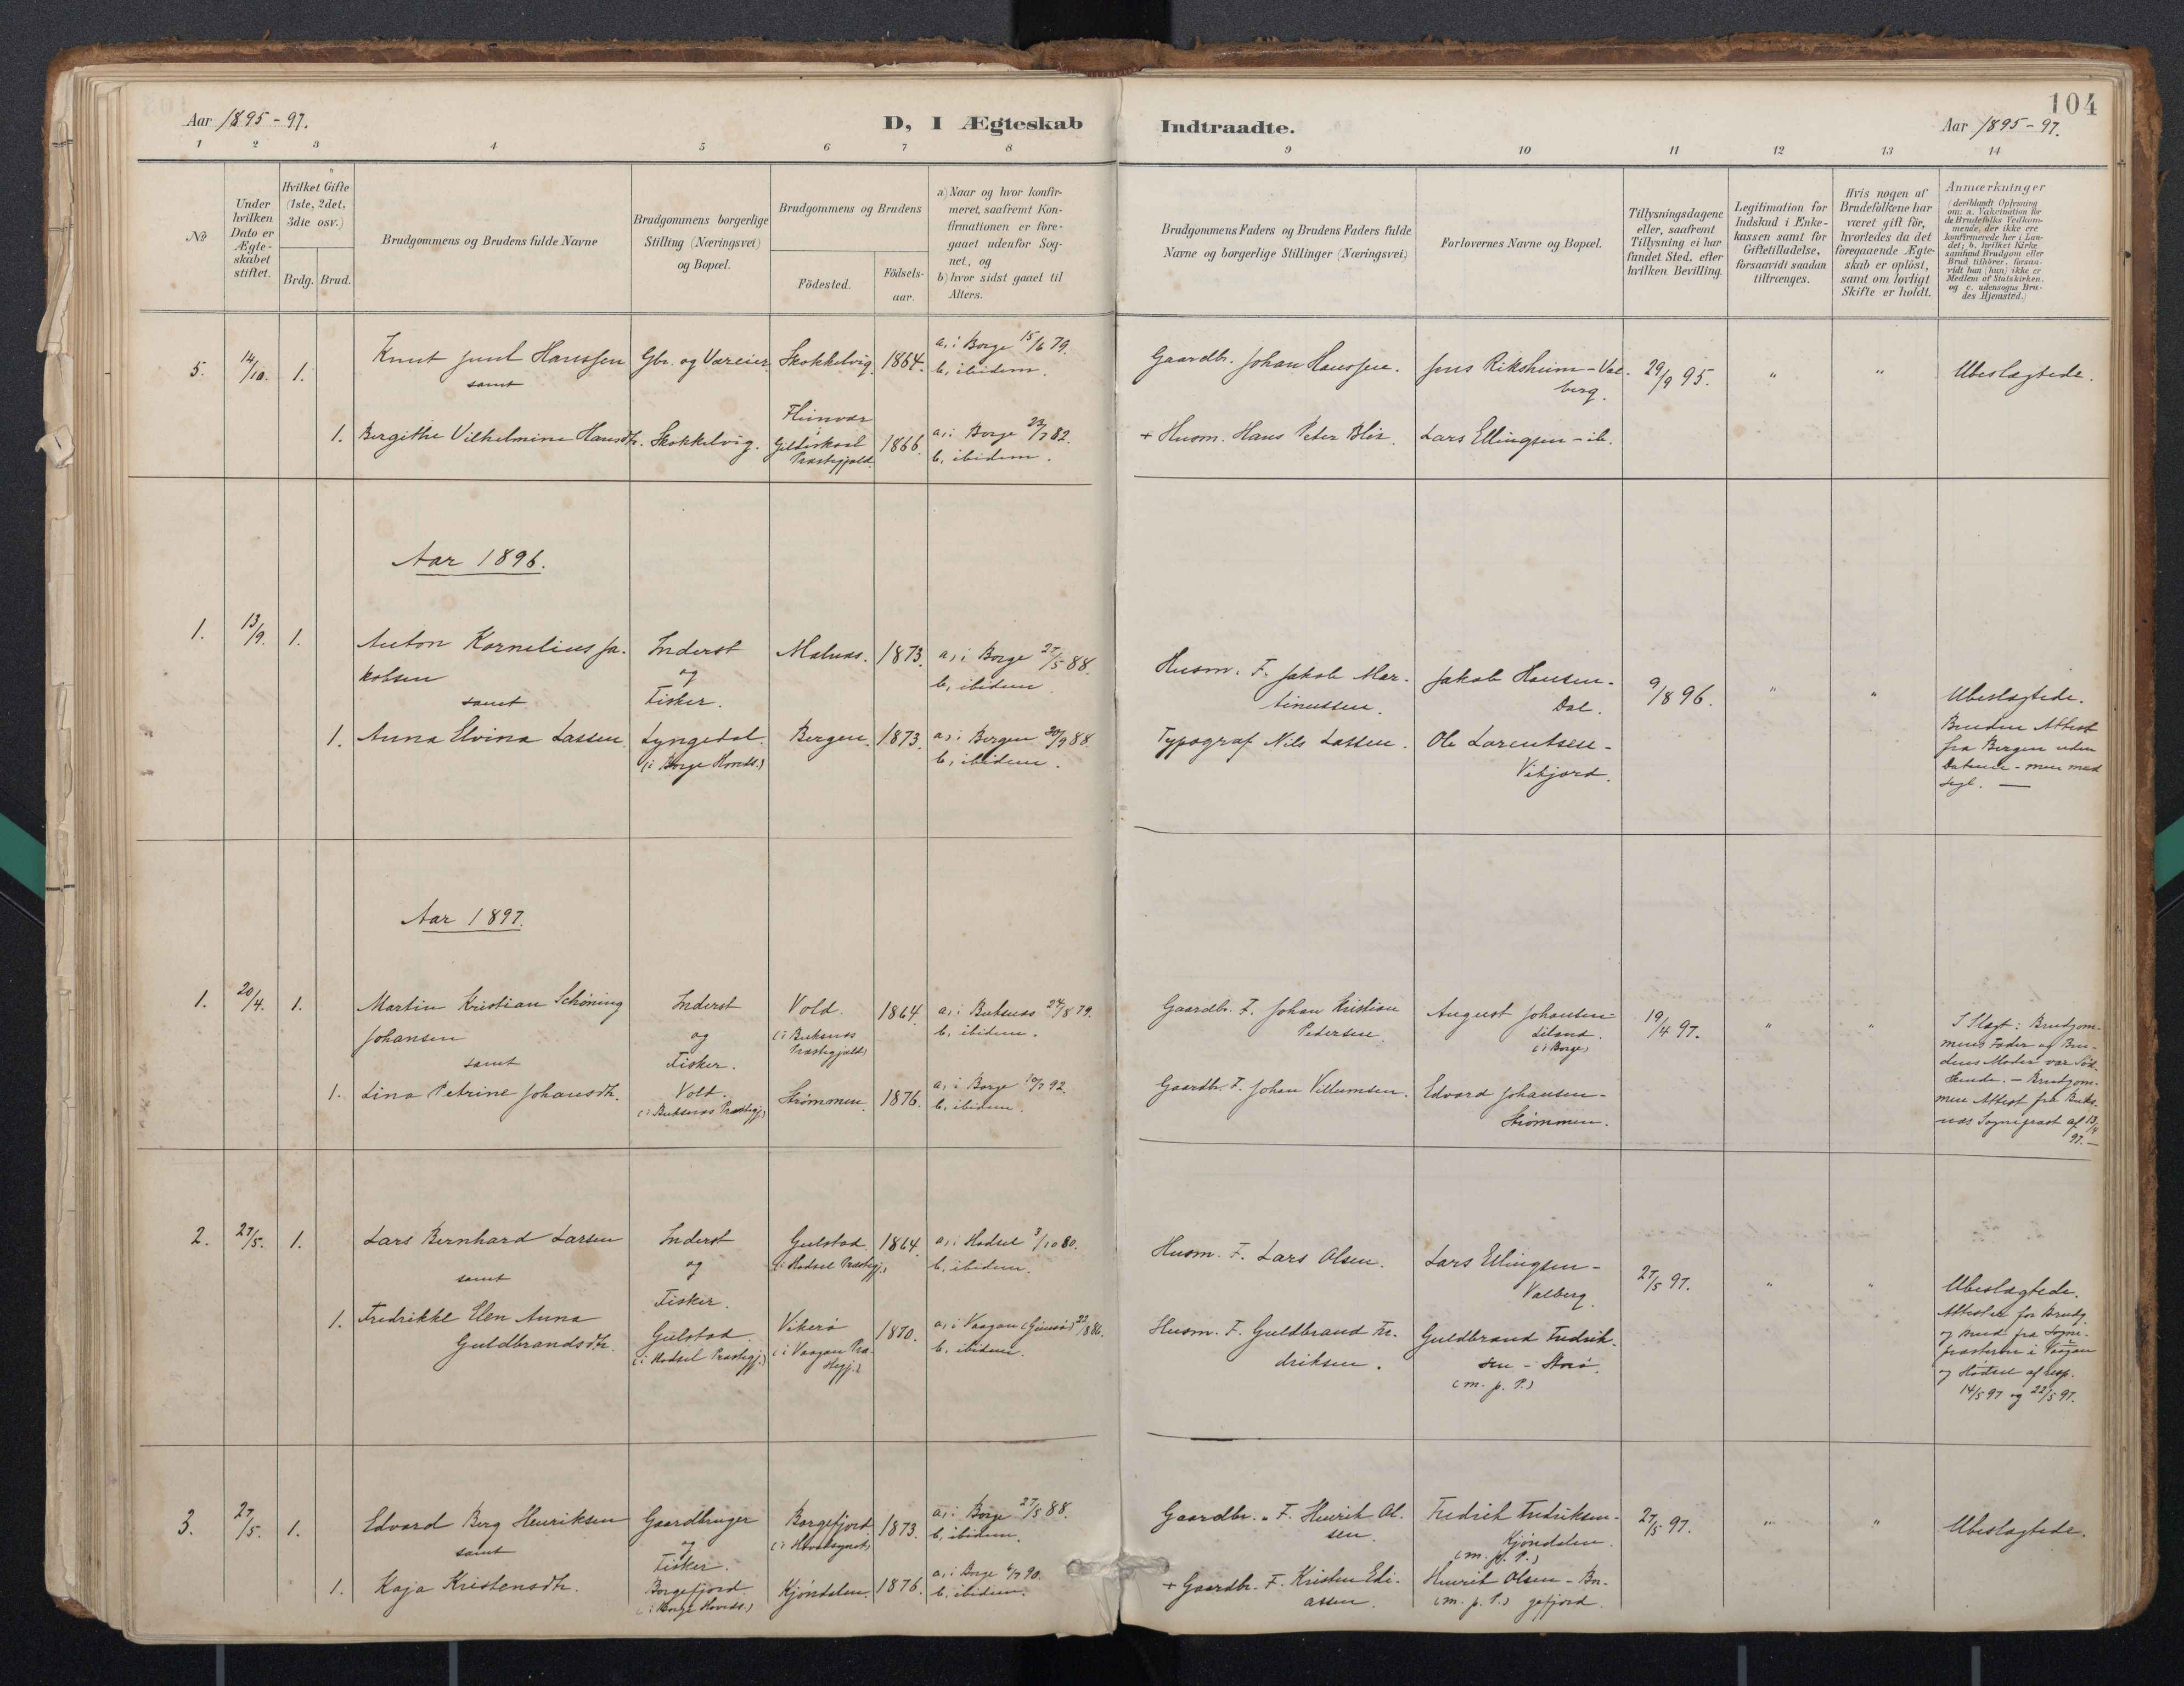 104
Aar 1895-97.
D, I Ægteskab Indtraadte.
Aar 1895-97.
1 2 3 4 5 6 7 8 9 10 11 12 13 14
№
Under hvilken Dato er Ægte-skabet stiftet.
Hvilket Gifte (1ste, 2det, 3die osv.)
Brdg. Brud.
Brudgommens og Brudens fulde Navne
Brudgommens borgerlige Stilling (Næringsvei) og Bopæl.
Brudgommens og Brudens
Födested.
Födsels-aar.
a) Naar og hvor konfir-meret, saafremt Kon-firmationen er fore-gaaet udenfor Sog-net, og
b) hvor sidst gaaet til Alters.
Brudgommens Faders og Brudens Faders fulde Navne og borgerlige Stillinger (Næringsvei)
Forlovernes Navne og Bopæl.
Tillysningsdagene eller, saafremt Tillysning ei har fundet Sted, efter hvilken Bevilling.
Legitimation for Indskud i Enke-kassen samt for Giftetilladelse, forsaavidt saadan tiltrænges.
Hvis nogen af Brudefolkene har været gift för, hvorledes da det foregaaende Ægte-skab er oplöst, samt om lovligt Skifte er holdt.
Anmærkninger
(deriblandt Oplysning om: a. Vakcination for de Brudefolks Vedkom-mende, der ikke ere konfirmerede her i Lan-det; b. hvilket Kirke-samfund Brudgom eller Brud tilhörer, forsaa-vidt han (hun) ikke er Medlem af Statskirken, og c. udensogns Bru-des Hjemsted.)
5. 14/10. 1. Knut Juul Hanssen Gbr. og Væreier Skokkelvig. 1864. a, i Borge 15/6 79. Gaardbr. Johan Hanssen. Jens Riksheim - Val- 29/9 95. " " Ubeslægtede.
samt b, ibidem. berg.
1. Bergithe Vilhelmine Hansdtr. Skokkelvig. Gildeskaal Præstegjæld. 1866. a, i Borge 82. + Husm. Hans Peter Lars Ellingsen - ib.
b, ibidem.
Aar 1896.
1. 13/9. 1. Anton Kornelius Ja- Inderst Malnæs. 1873. a, i Borge 27/5 88. Husm. F. Jakob Mar- Jakob Hansen - 9/8 96. " " Ubeslægtede.
kobsen og b, ibidem. tinussen. Dal.
samt Fisker.
1. Anna Elvina Lassen Lyngedal. Bergen. 1873. a, i Bergen 30/9 88. Typograf Nils Lassen. Ole Lorentsen - Bruden Attest
(i Borge Hoveds.) b, ibidem. Vikjord. fra Bergen uden
Datum - men med
Segl. —
Aar 1897.
1. 20/4. 1. Martin Kristian Schöning Inderst Vold. 1864. a, i Buksnæs 24/8 79. Gaardbr. F. Johan Kristian August Johansen - 19/4 97. " " I Slægt: Brudgom-
Johansen og (i Buksnæs b, ibidem. Pedersen. Liland. mens Fader og Bru-
samt Fisker. Præstegjæld) (i Borge) dens Moder var Söd-
1. Lina Petrine Johansdtr. Vold. Strömmen. 1876. a, i Borge 10/7 92. Gaardbr. F. Johan Villumsen. Edvard Johansen - skende. - Brudgom-
(i Buksnæs Præstegj.) b, ibidem. Strömmen. men Attest fra Buks-
næs Sognepræst af 13/4
97. —
2. 27/5. 1. Lars Bernhard Larsen Inderst Gulstad. 1864. a, i Hadsel 3/10 80. Husm. F. Lars Olsen. Lars Ellingsen - 27/5 97. " " Ubeslægtede.
samt og (i Hadsel Præstegj.) b, ibidem. Valberg.
Fisker.
1. Fredrikke Elen Anna Gulstad Vikerö 1870. a, i Vaagan (Gimsö) 22/8 86. Husm. F. Guldbrand Fre- Guldbrand Fredrik- Attester for Brudg.
Guldbrandsdtr. (i Hadsel Præstegj.) (i Vaagan Præ- b, ibidem. driksen. sen - Storö. og Brud fra Sogne-
stegj.) (m. p. P.) præsterne i Vaagan
og Hadsel af resp.
14/5 97 og 22/5 97.
3. 27/5. 1. Edvard Berg Henriksen Gaardbruger Borgefjord 1873. a, i Borge 27/5 88. Gaardbr. F. Henrik Ol- Fredrik Fredriksen - 27/5 97. " " Ubeslægtede.
samt og (i Hovedsognet) b, ibidem. sen. Kjöndalen.
Fisker. (m. p. P.)
1. Kaja Kristensdtr. Borgefjord Kjöndalen. 1876. a, i Borge 6/7 90. + Gaardbr. F. Kristen Edi- Henrik Olsen - Bor-
(i Borge Hoveds.) b, ibidem. assen. (m. p. P.) gefjord.